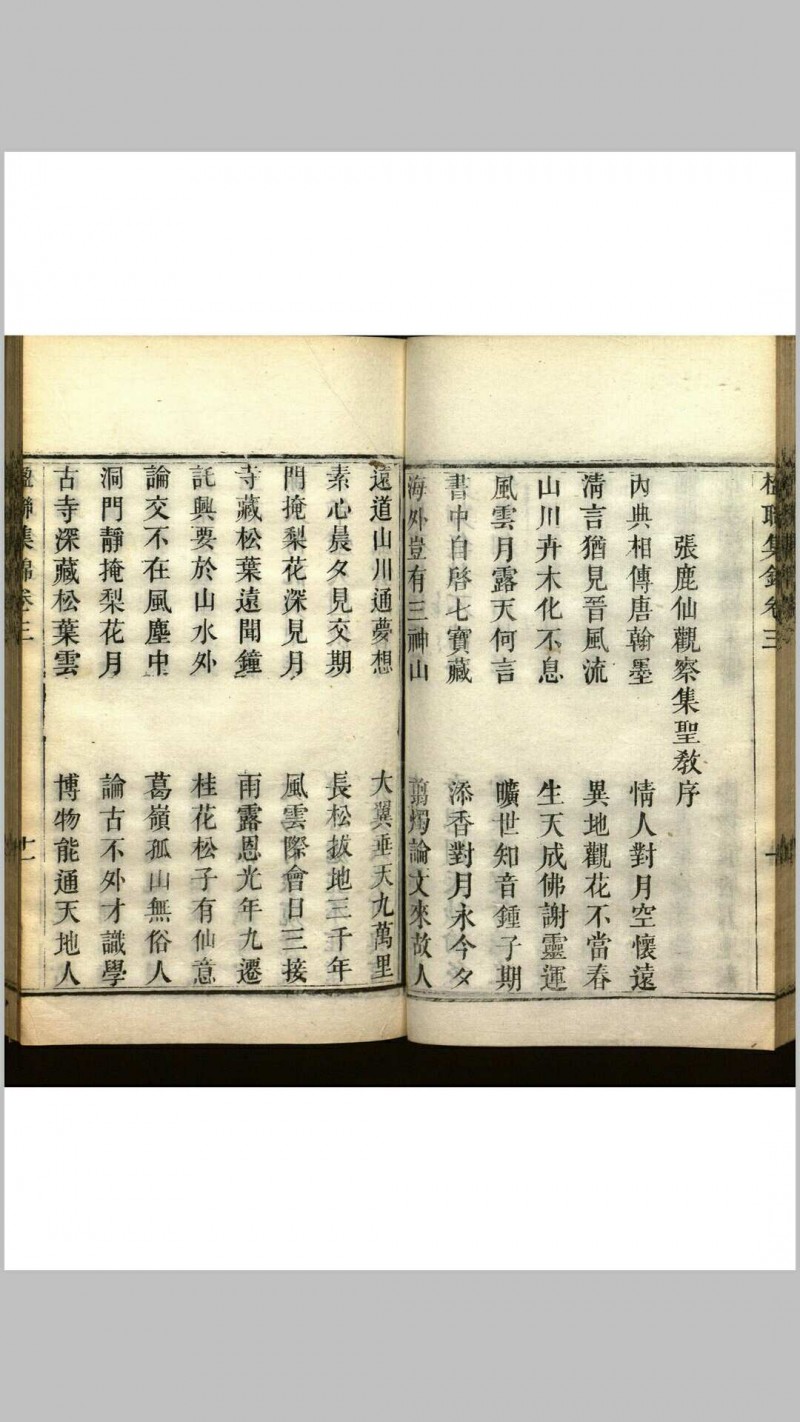 張鹿仙觀察集聖敎序
內典相傳唐翰墨 情人對月空懷遠
清言猶見晉風流 異地觀花不當春
山川卉木化不息 生天成佛謝靈運
風雲月露天何言 曠世知音鍾子期
書中自啓七寶藏 添香對月永今夕
海外豈有三神山 翦燭論文來故人
遠道山川通夢想 大翼垂天九萬里
素心晨夕見交期 長松拔地三千年
門掩梨花深見月 風雲際會日三接
寺藏松葉遠聞鐘 雨露恩光年九遷
託興要於山水外 桂花松子有仙意
論交不在風塵中 葛嶺孤山無俗人
洞門靜掩梨花月 論古不外才識學
古寺深藏松葉雲 博物能通天地人
楹聯集錦卷三